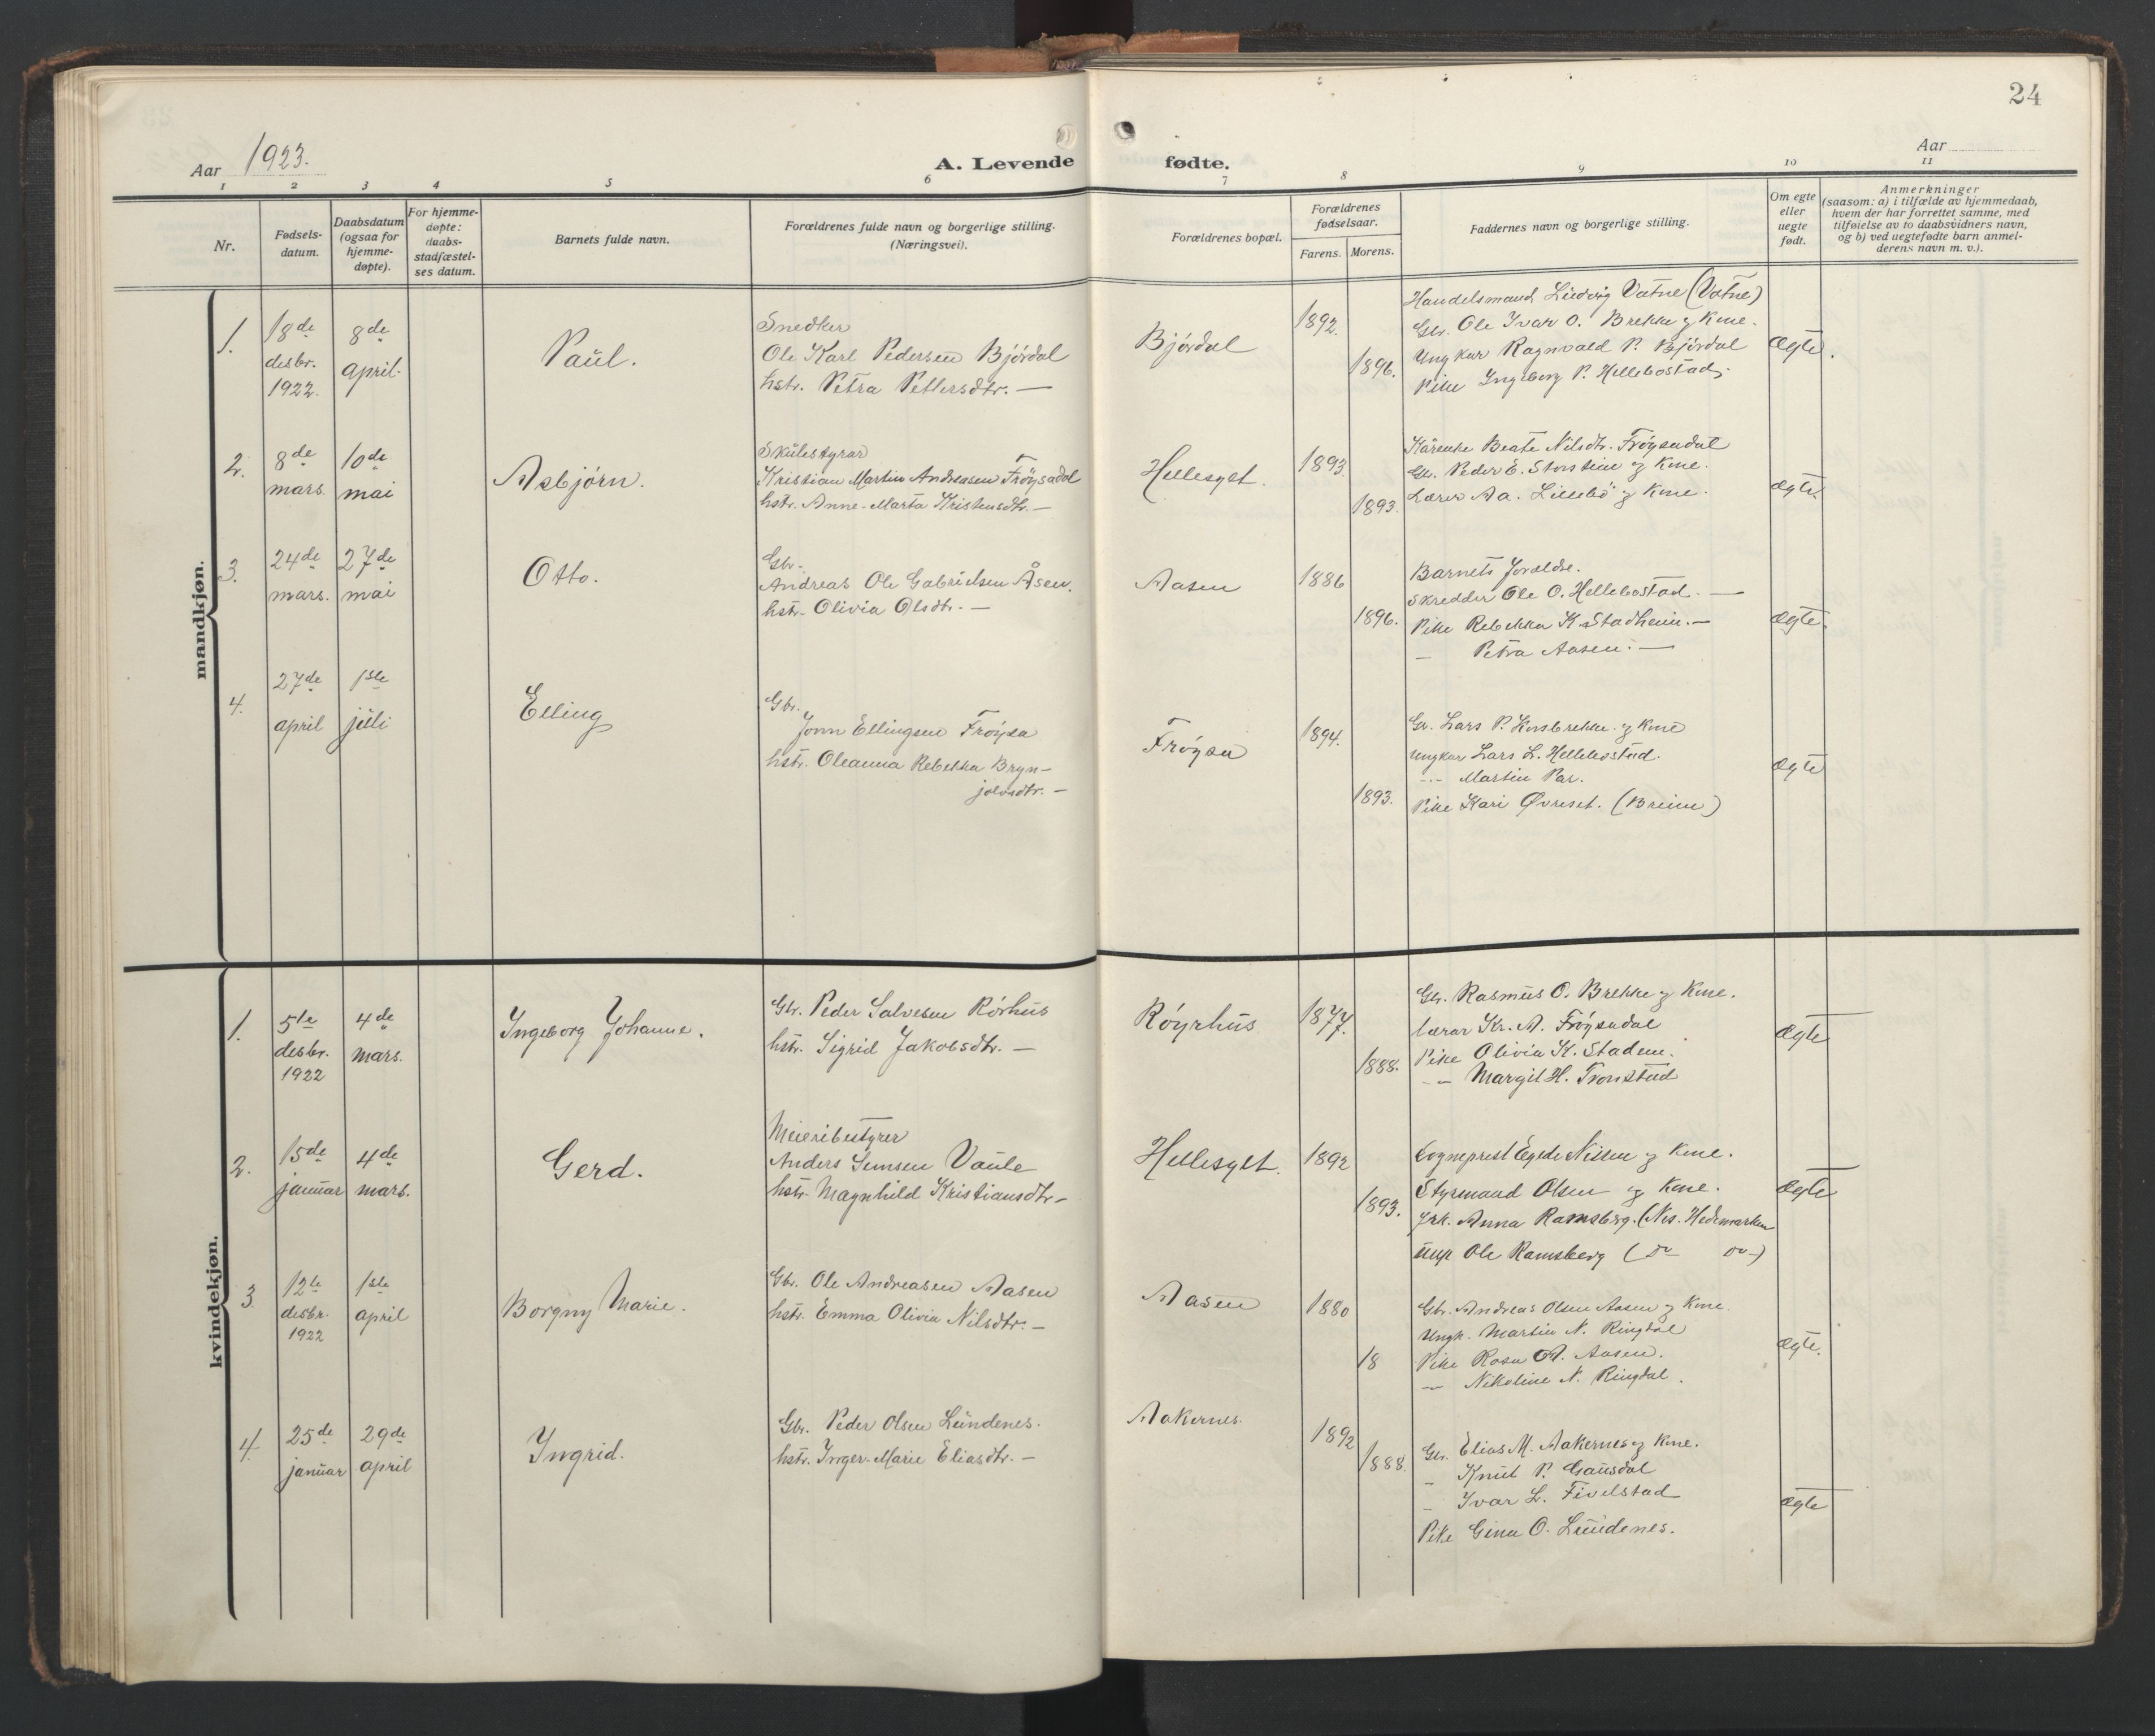 24
Aar 1923.
A. Levende fødte.
Aar
1 2 3 4 5 6 7 8 9 10 11
Nr.
Fødsels-
datum.
Daabsdatum
(ogsaa for
hjemme-
døpte).
For hjemme-
døpte:
daabs-
stadfæstel-
ses datum.
Barnets fulde navn.
Forældrenes fulde navn og borgerlige stilling.
(Næringsvei).
Forældrenes bopæl.
Forældrenes
fødselsaar.
Farens. Morens.
Faddernes navn og borgerlige stilling.
Om egte
eller
uegte
født.
Anmerkninger
(saasom: a) i tilfælde av hjemmedaab,
hvem der har forrettet samme, med
tilføielse av to daabsvidners navn,
og b) ved uegtefødte barn anmel-
derens navn m. v.).
mandkjøn.
1.
18de
desbr.
1922.
8de
april.
Paul.
Snedker
Ole Karl Pedersen Bjórdal
hstr. Petra Pettersdtr. —
Bjórdal
1892.
1896.
Handelsmand Ludvig Vatne (Vatne)
Gbr. Ole Ivar O. Brekke og Kone.
Ungkar Ragnvald P. Bjórdal
Pike Ingeborg P. Hellebostad.
Ægte.
2.
8de
mars.
10de
mai
Asbjórn.
Skulestyrar
Kristian Martin Andreasen Fróysadal
hstr. Anne-Marta Kristensdtr. —
Hellesylt.
1893
1893.
Kårenke Beate Nilsdtr. Fróysadal
Gbr. Peder E. Storstein og Kone.
Lærer Aa. Lillebó og Kone.
Ægte.
3.
24de
mars.
27de
mai
Otto.
Gbr.
Andreas Ole Gabrielsen Åsen.
hstr. Olivia Olsdtr. —
Aasen
1886
1896.
Barnets foreldre.
Skredder Ole O. Hellebostad. —
Pike Rebekka K. Stadheim. —
— Petra Aasen. —
Ægte.
4.
27de
april
1ste
juli
Elling
Gbr.
Jonn Ellingsen Fróysa
hstr. Oleanna Rebekka Bryn-
jolvsdtr. —
Fróysa
1894.
1893.
Gbr. Lars P. Korsbrekke og Kone
Ungkar Lars L. Hellebostad.
-"- Martin Par.
Pike Kari Øvreset. (Breim)
Ægte
kvindekjøn.
1.
5te
desbr.
1922
4de
mars.
Ingeborg Johanne.
Gbr. Peder Salvesen Rórhus
hstr. Sigrid Jakobsdtr. —
Róyrhus
1877.
1888.
Gbr. Rasmus O. Brekke og Kone.
Lærar Kr. A. Fróysadal
Pike Olivia K. Stadem.
-"- Margit H. Tronstad
Ægte
2.
15de
januar
4de
mars.
Gerd.
Meieribestyrer
Anders Semsen Vaule
hstr. Magnhild Kristiansdtr —
Hellesylt.
1892
1893.
Sogneprest Egede Nissen og Kone.
Styrmand Olsen og Kone.
Frk. Anna Ramsberg. (Nes. Hedemarken
Ungk. Ole Ramsberg ( do do )
Ægte
3.
12te
desbr.
1922
1ste
april
Borgny Marie.
Gbr. Ole Andreasen Aasen
hstr. Emma Olivia Nilsdtr. —
Aasen
1880
18
Gbr. Andreas Olsen Aasen og Kone.
Ungk. Martin N. Ringdal
Pike Rosa A. Aasen.
-"- Nikoline N. Ringdal.
Ægte.
4.
25de
januar
29de
april
Ingrid.
Gbr. Peder Olsen Lundenes.
hstr. Inger-Marie Eliasdtr. —
Aakernes.
1892
1888.
Gbr. Elias M. Aakernes og Kone.
- Knut P. Gausdal
- Ivar L. Fivelstad
Pike Gina O. Lundenes.
Ægte